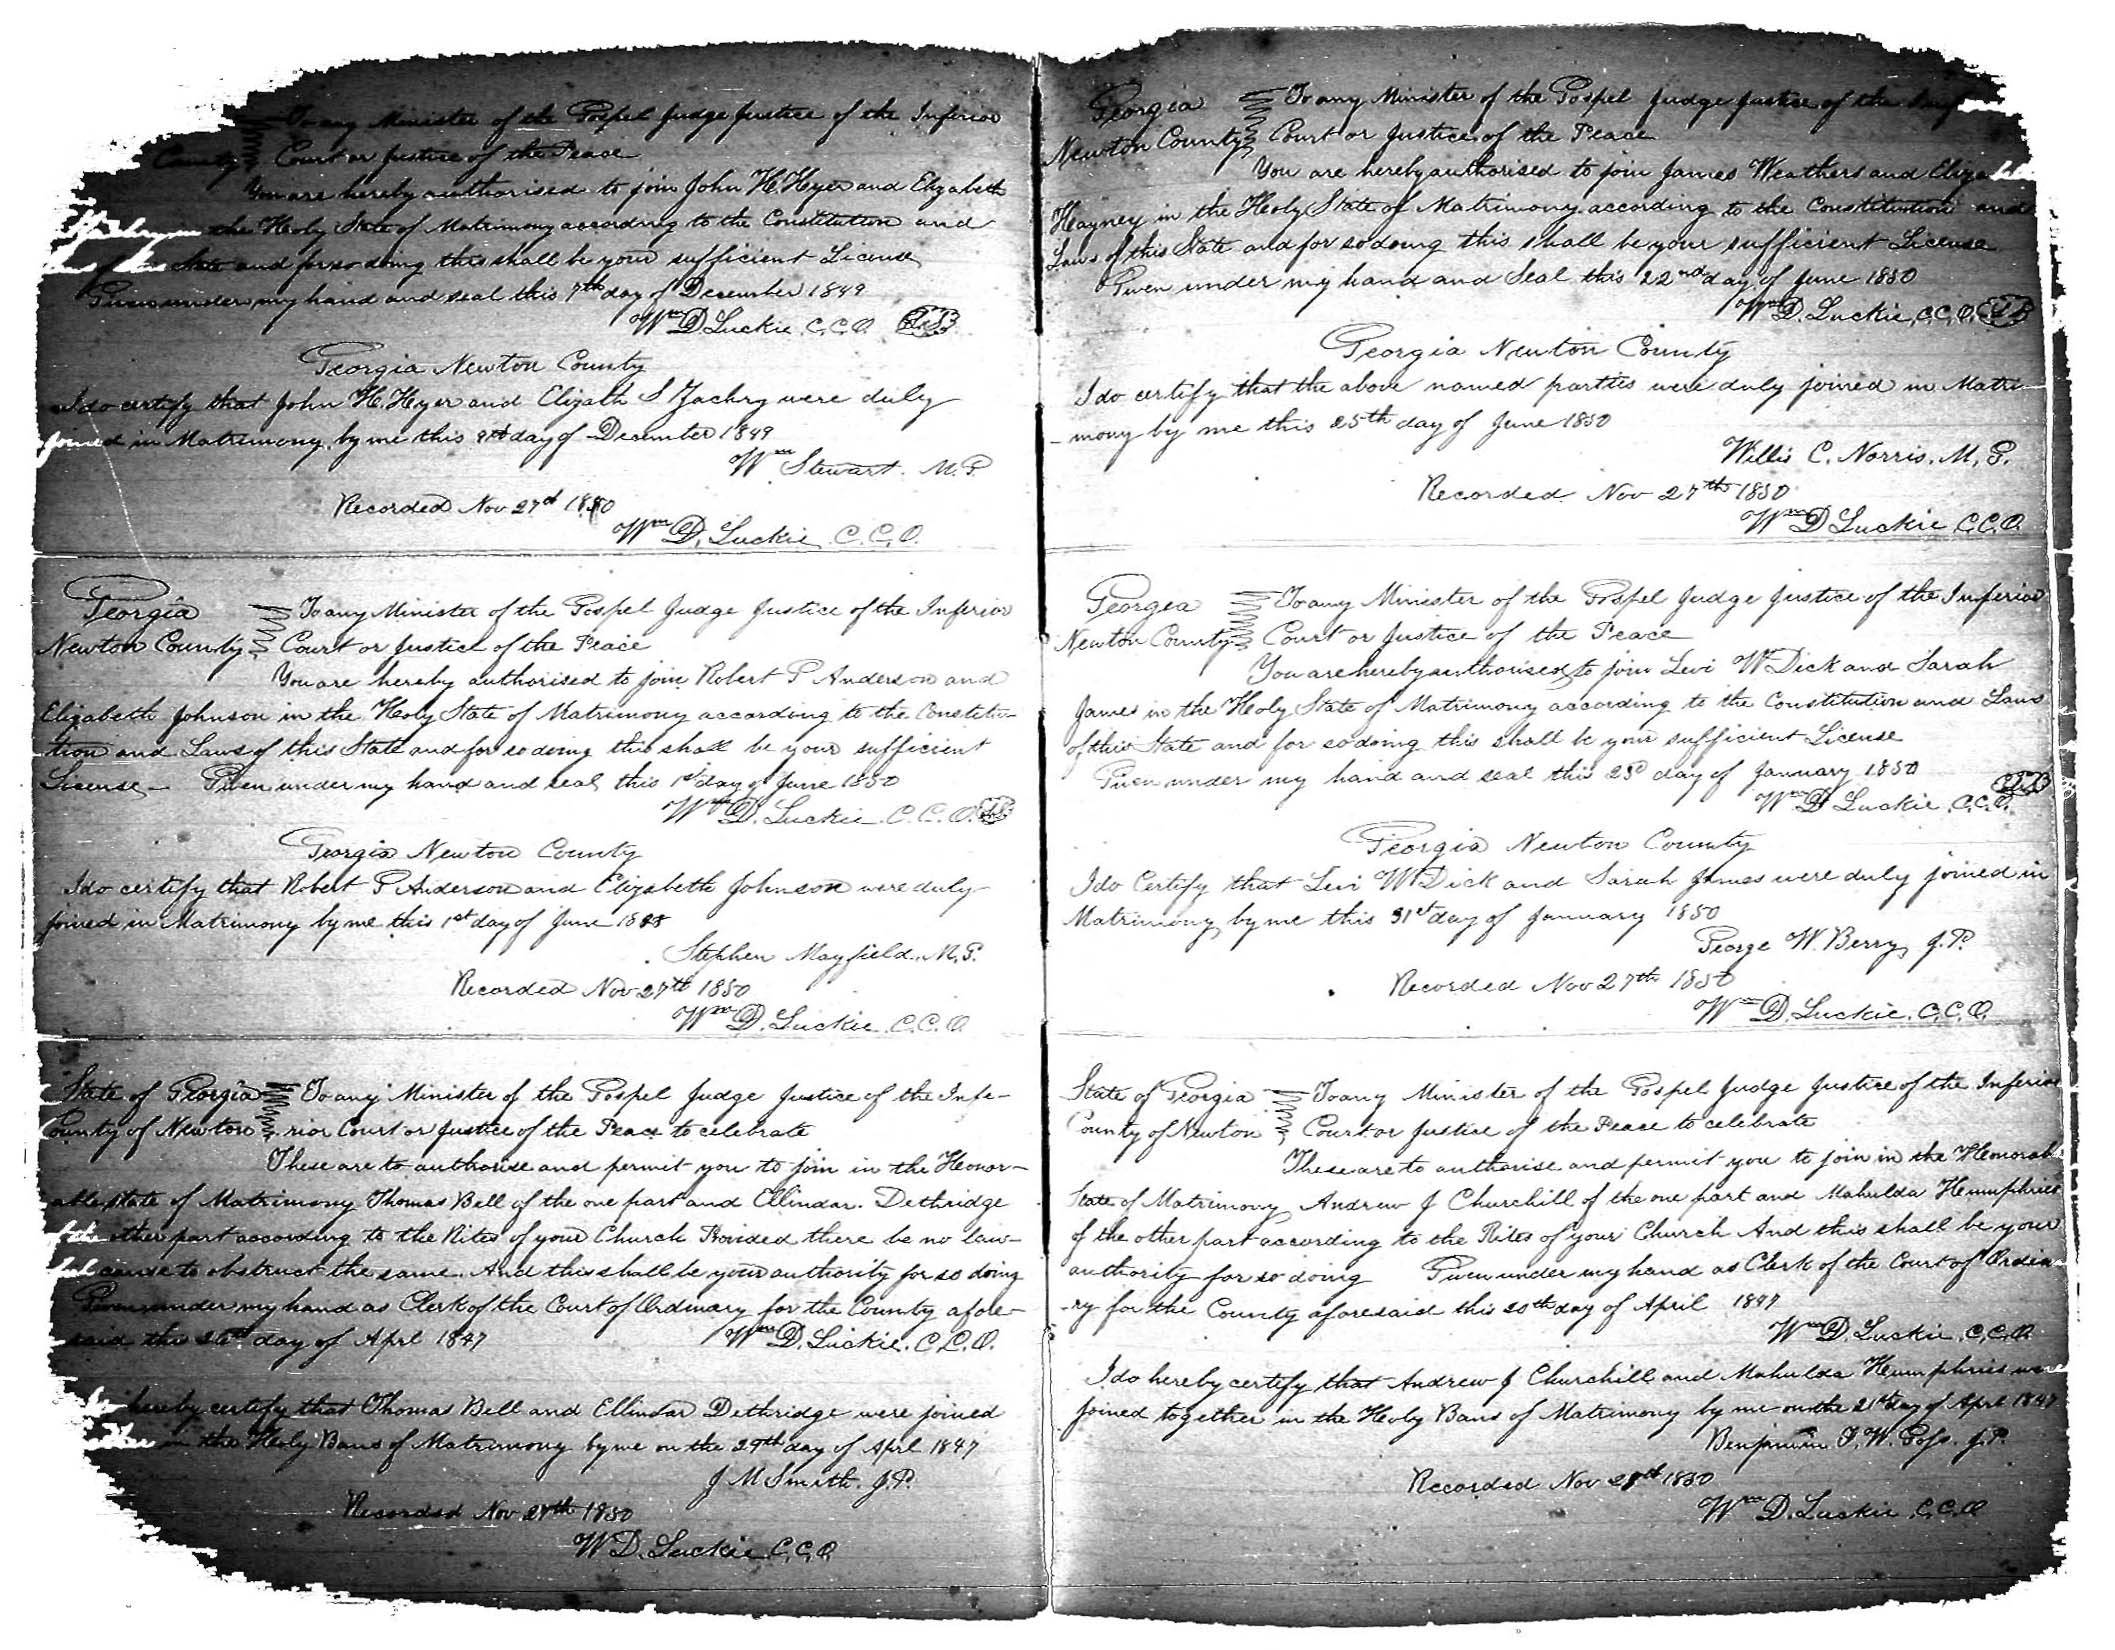 To any Minister of the Gospel Judge Justice of the Inferior
County Court or Justice of the Peace
You are hereby authorised to join John H. Hyer and Elizabeth
in the Holy State of Matrimony according to the Constitution and
of this State and for so doing this shall be your sufficient License
Given under my hand and seal this 7th day of December 1849
Wm D. Luckie C.C.O. L.S.
Georgia Newton County
I do certify that John H. Hyer and Elizath S Zachry were duly
joined in Matrimony by me this 9th day of December 1849
Wm Stewart. M.G.
Recorded Nov 27d 1850
Wm D. Luckie, C.C.O.
Georgia To any Minister of the Gospel Judge Justice of the Inferior
Newton County Court or Justice of the Peace
You are hereby authorised to join Robert P Anderson and
Elizabeth Johnson in the Holy State of Matrimony according to the Constitu-
tion and Laws of this State and for so doing this shall be your sufficient
License - Given under my hand and seal this 1st day of June 1850
Wm D. Luckie. C.C.O. L.S.
Georgia Newton County
I do certify that Robert P Anderson and Elizabeth Johnson were duly
joined in Matrimony by me this 1st day of June
Stephen Mayfield. M.G.
Recorded Nov 27th 1850
Wm D. Luckie. C.C.O.
State of Georgia To any Minister of the Gospel Judge Justice of the Infe-
County of Newton rior Court or Justice of the Peace to celebrate
These are to authorise and permit you to join in the Honor-
able state of Matrimony Thomas Bell of the one part and Ellindar. Dethridge
of the other part according to the Rites of your Church Provided there be no law-
ful cause to obstruct the same. And this shall be your authority for so doing
Given under my hand as Clerk of the Court of Ordinary for the County afore-
said this 26th day of Aprl 1847 Wm D. Luckie. C.C.O.
hereby certify that Thomas Bell and Ellindar Dethridge were joined
in the Holy Bans of Matrimony by me on the 29th day of Aprl 1847
J M Smith. J.P.
Recorded Nov 28th 1850
W D. Luckie C.C.O.
Georgia To any Minister of the Gospel Judge Justice of the Inf
Newton County Court or Justice of the Peace
You are hereby authorised to join James Weathers and Eliza
Hayney in the Holy State of Matrimony according to the Constitution and
Laws of this State and for so doing this shall be your sufficient License
Given under my hand and Seal this 22nd day of June 1850
Wm D. Luckie, C.C.O. L.S.
Georgia Newton County
I do certify that the above named parties were duly joined in Matri-
-mony by me this 25th day of June 1850
Willis C. Norris. M.G.
Recorded Nov 27th 1850
Wm D Luckie C.C.O.
Georgia To any Minister of the Gospel Judge Justice of the Inferior
Newton County Court or Justice of the Peace
You are hereby authorised to join Levi W Dick and Sarah
James in the Holy State of Matrimony according to the Constitution and Laws
of this State and for so doing this shall be your sufficient License
Given under my hand and seal this day of January 1850
Wm D Luckie. C.C.O. L.S.
Georgia Newton County
I do Certify that Levi W Dick and Sarah James were duly joined in
Matrimony by me this 31st day of January 1850
George W. Berry, J.P.
Recorded Nov 27th 1850
Wm D. Luckie. C.C.O.
State of Georgia To any Minister of the Gospel Judge Justice of the Inferior
County of Newton Court or Justice of the Peace to celebrate
These are to authorise and permit you to join in the Honorab
State of Matrimony Andrew J Churchill of the one part and Mahulda Humphries
of the other part according to the Rites of your Church And this shall be your
authority for so doing Given under my hand as Clerk of the Court of Ordina
-ry for the County aforesaid this 20th day of April 1847
Wm D. Luckie. C.C.O.
I do hereby certify that Andrew J Churchill and Mahulda Humphries were
joined together in the Holy Bans of Matrimony by me on the 21st day of Aprl 1847
Benjamin F. W. Goss. J.P.
Recorded Nov 28th 1850
Wm D. Luckie C.C.O